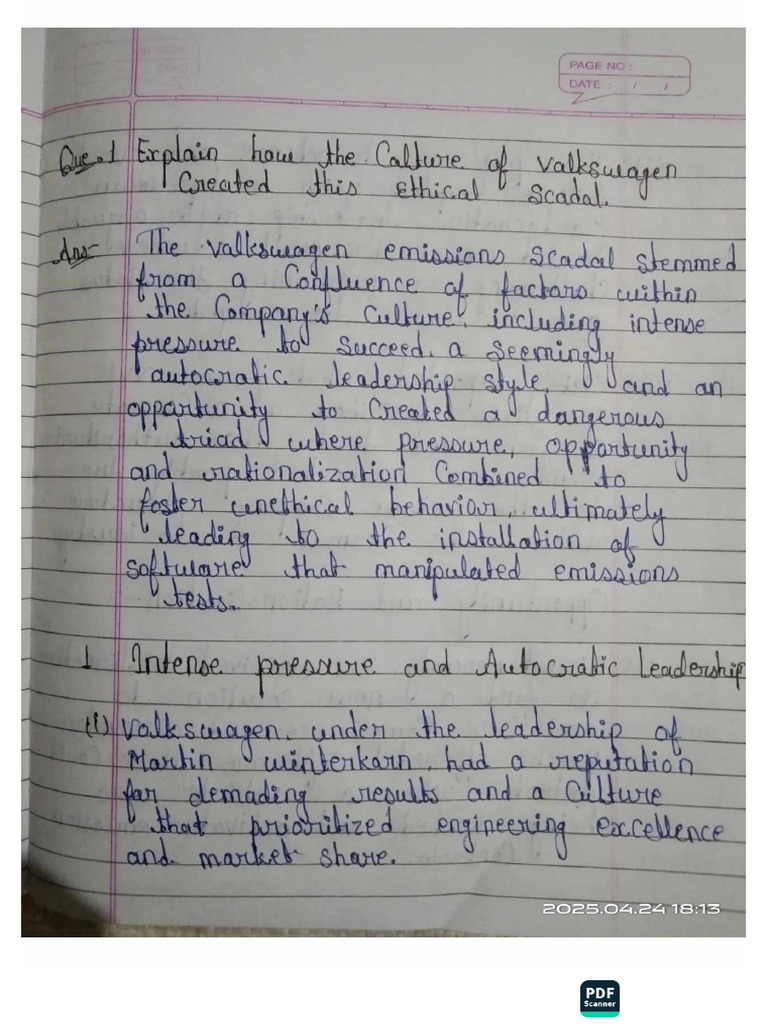 PAGE NO :
DATE : / /
Que.1 Explain how the Calture of valkswagen
Created this Ethical Scadal.
Ans- The valkswagen emissions scadal stemmed
from a Confluence of factors within
the Company's Culture, including intense
pressure to succeed, a seemingly
autocratic leadership style, and an
opportunity to Created a dangerous
triad where pressure, opportunity
and rationalization Combined to
foster unethical behavior, ultimately
leading to the installation of
software that manipulated emissions
tests.
1 Intense pressure and Autocratic Leadership
(i) valkswagen, under the leadership of
Martin winterkarn, had a reputation
for demading results and a Culture
that prioritized engineering excellence
and market share.
2025.04.24 18:13
PDF
Scanner